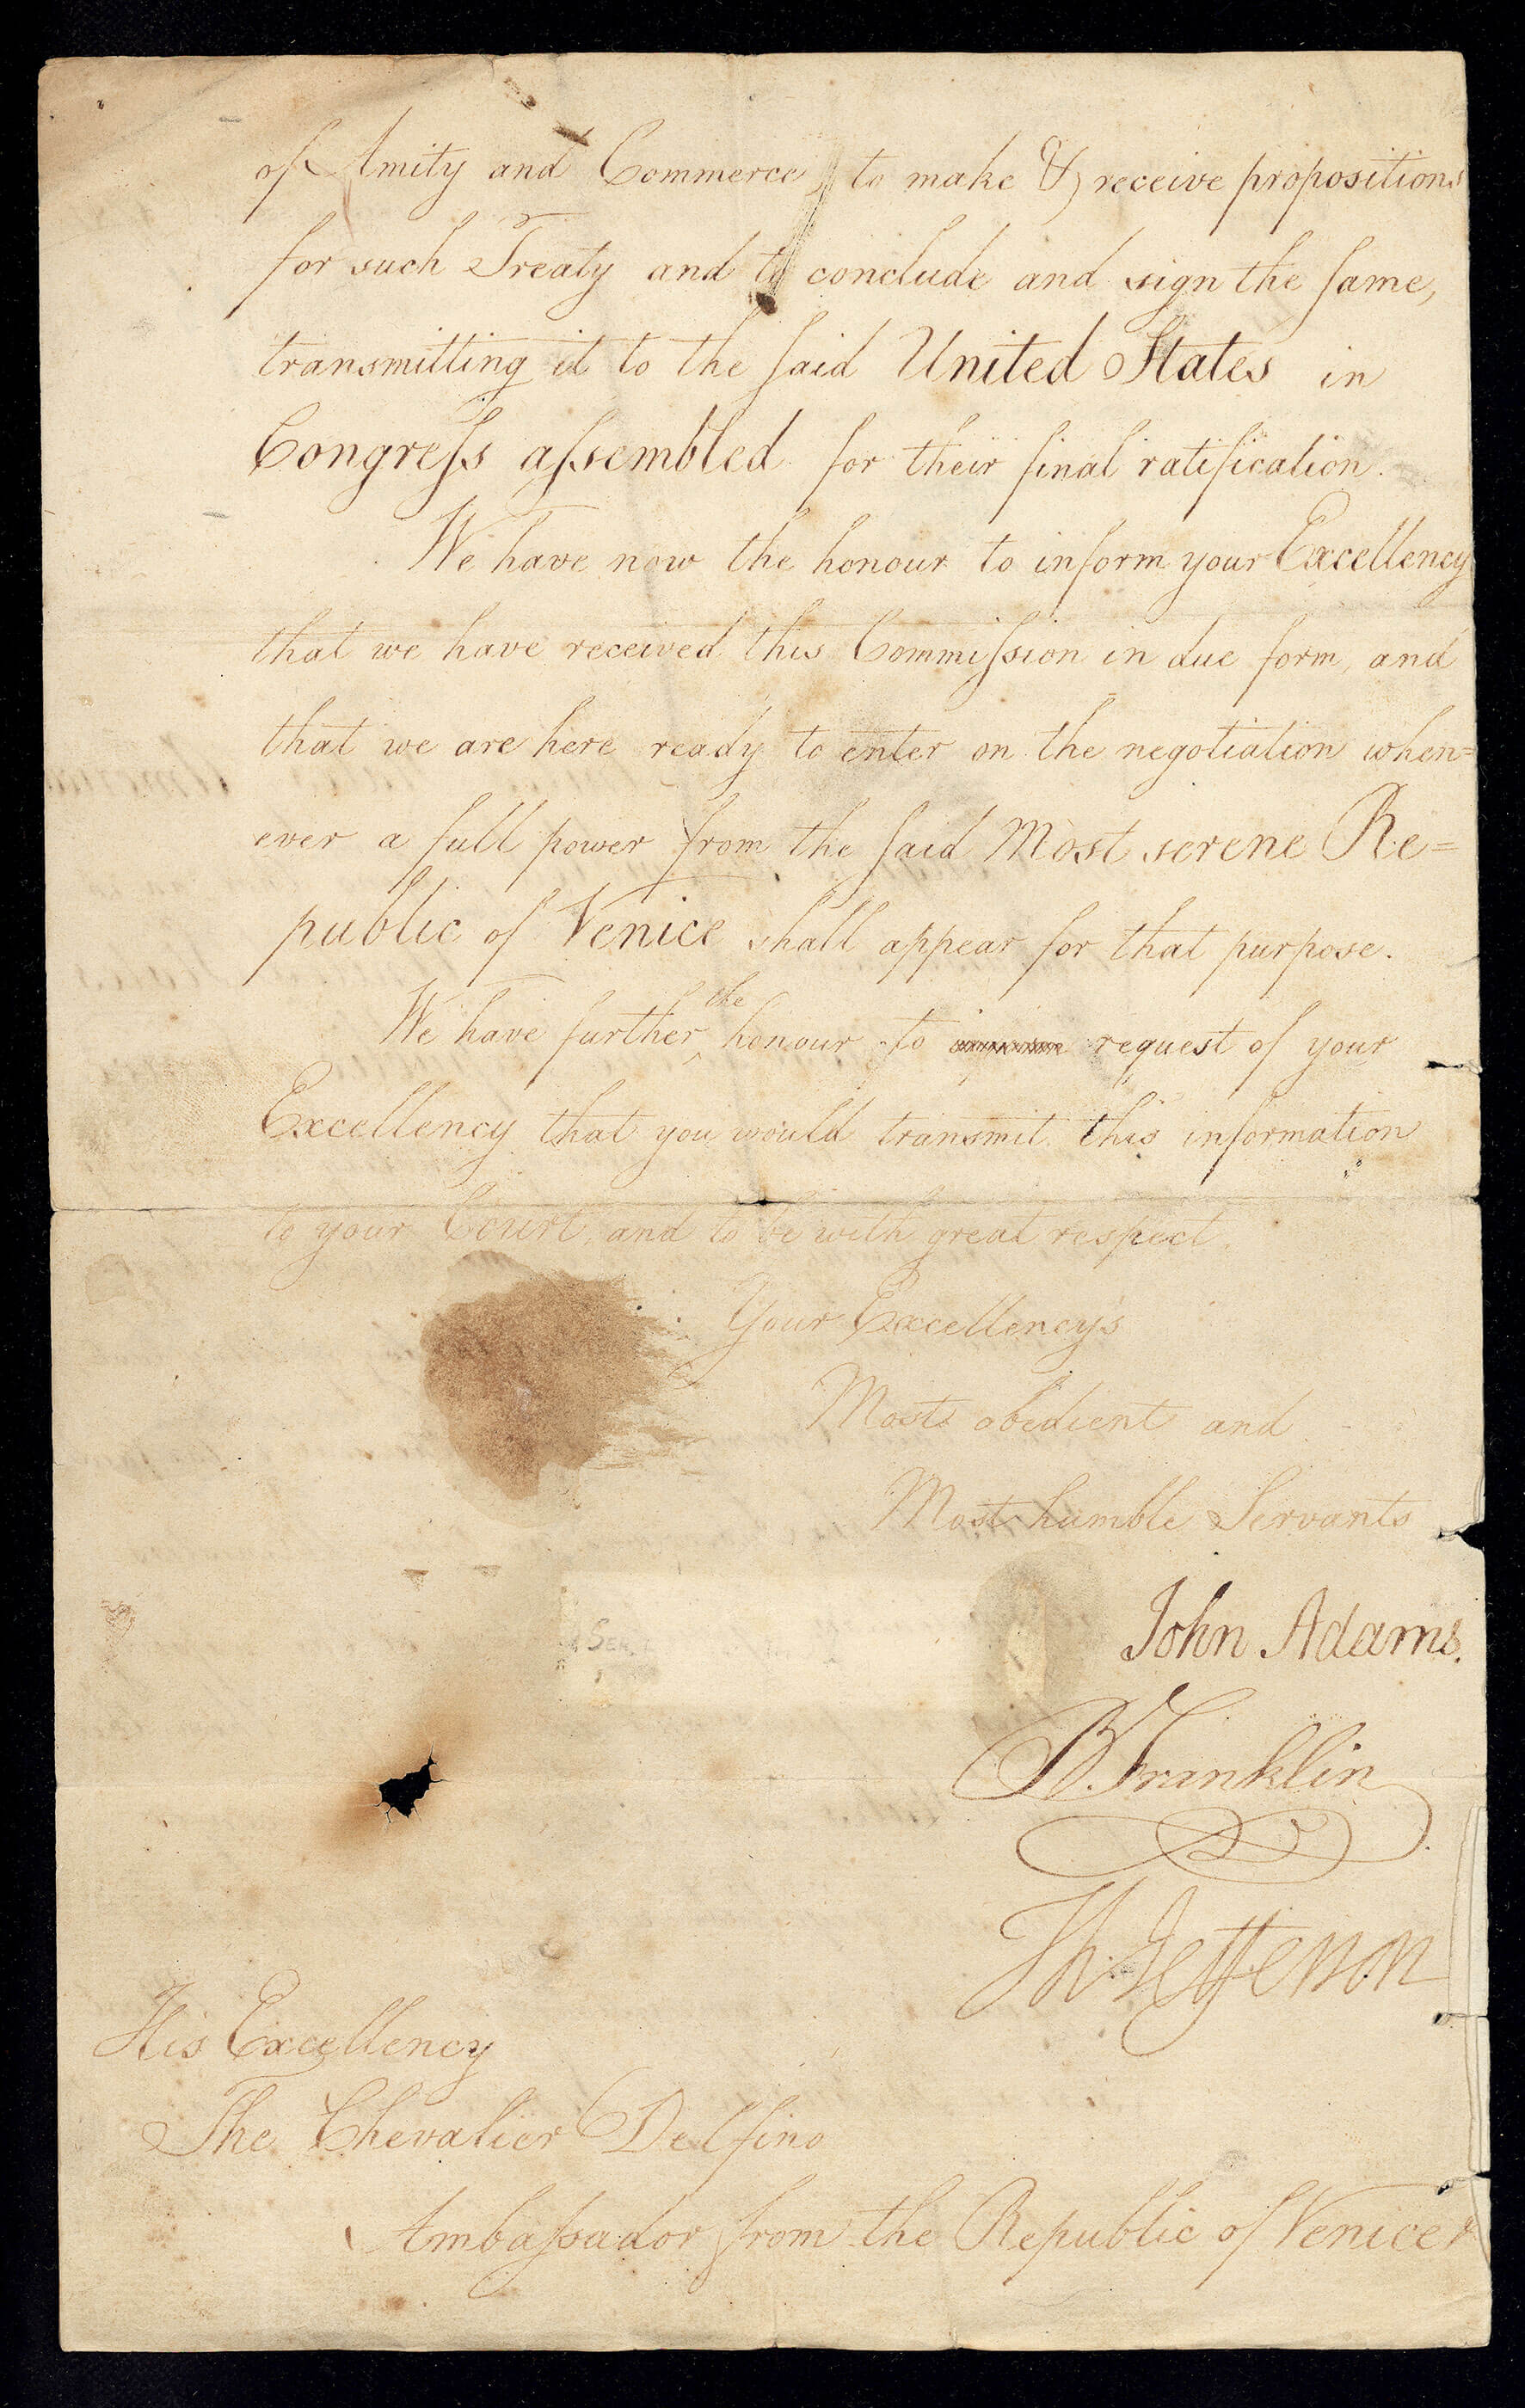 of Amity and Commerce, to make & receive propositions
for such Treaty and to conclude and sign the same,
transmitting it to the said United States in
Congreſs aſsembled for their final ratification.
We have now the honour to inform your Excellency
that we have received this Commiſsion in due form, and
that we are here ready to enter on the negotiation when=
ever a full power from the said Most serene Re=
public of Venice shall appear for that purpose.
We have further the honour to request of your
Excellency that you would transmit this information
to your Court, and to be with great respect.
Your Excellency's
Most obedient and
Most humble Servants
John Adams.
B. Franklin
Th Jefferson
His Excellency
The Chevalier Delfino
Ambaſsador from the Republic of Venice